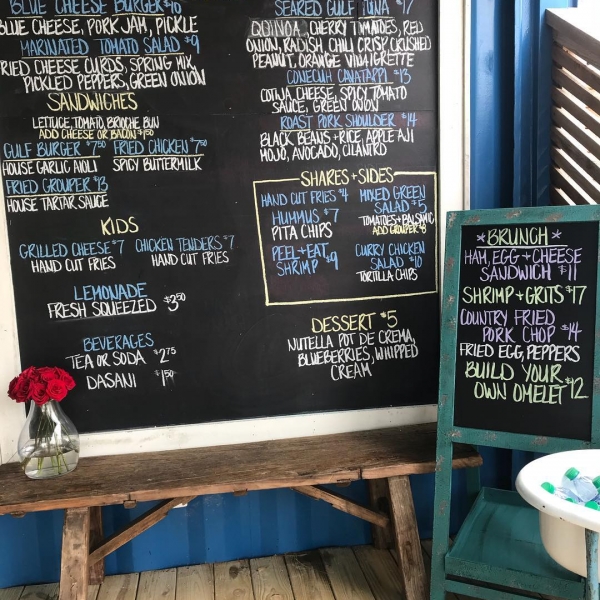 BLUE CHEESE BURGER $16
BLUE CHEESE, PORK JAM, PICKLE
MARINATED TOMATO SALAD $9
FRIED CHEESE CURDS, SPRING MIX,
PICKLED PEPPERS, GREEN ONION
SANDWICHES
LETTUCE, TOMATO, BRIOCHE BUN
ADD CHEESE OR BACON $1.50
GULF BURGER $7.50 FRIED CHICKEN $7.50
HOUSE GARLIC AIOLI SPICY BUTTERMILK
FRIED GROUPER $13
HOUSE TARTAR SAUCE
KIDS
GRILLED CHEESE $7 CHICKEN TENDERS $7
HAND CUT FRIES HAND CUT FRIES
LEMONADE
FRESH SQUEEZED $3.50
BEVERAGES
TEA OR SODA $2.75
DASANI $1.50
SEARED GULF TUNA $17
QUINOA, CHERRY TOMATOES, RED
ONION, RADISH, CHILI CRISP, CRUSHED
PEANUT, ORANGE VINAIGRETTE
CONECUH CAVATAPPI $13
COTIJA, CHEESE, SPICY TOMATO
SAUCE, GREEN ONION
ROAST PORK SHOULDER $14
BLACK BEANS + RICE, APPLE AJI
MOJO, AVOCADO, CILANTRO
SHARES + SIDES
HAND CUT FRIES $4
HUMMUS $7
PITA CHIPS
PEEL + EAT
SHRIMP $9
MIXED GREEN
SALAD $5
TOMATOES + BALSAMIC
ADD GROUPER $8
CURRY CHICKEN
SALAD $10
TORTILLA CHIPS
DESSERT $5
NUTELLA POT DE CREMA,
BLUEBERRIES, WHIPPED
CREAM
*BRUNCH*
HAM, EGG + CHEESE
SANDWICH $11
SHRIMP + GRITS $17
COUNTRY FRIED
PORK CHOP $14
FRIED EGG, PEPPERS
BUILD YOUR
OWN OMELET $12